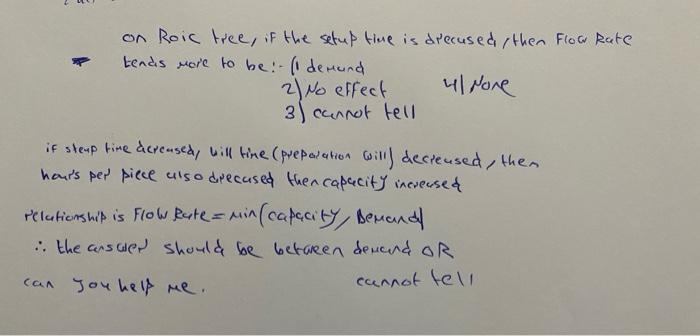 on Roic tree, if the setup time is drecused, then Flow Rate
tends more to be:- (1 demand
2) No effect 4) None
3) cannot tell
if steup time dcreased, will time (preparation will) decreased, then
hours per piece also drecused then capacity increased
relationship is Flow Rate = min(capacity, Demand)
∴ the answer should be between demand OR
can you help me. cannot tell